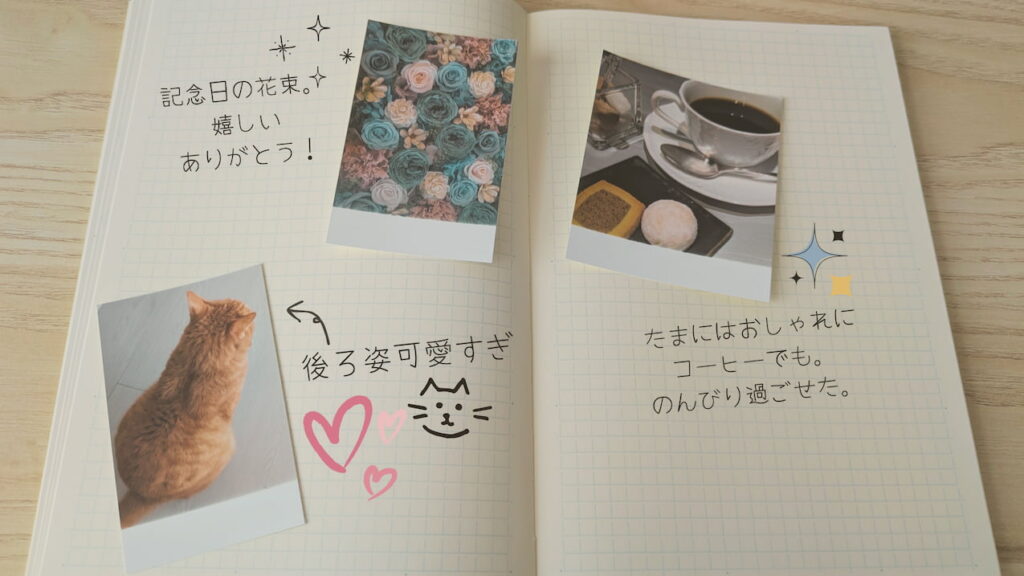 記念日の花束。
嬉しい
ありがとう！
後ろ姿可愛すぎ
たまにはおしゃれに
コーヒーでも。
のんびり過ごせた。